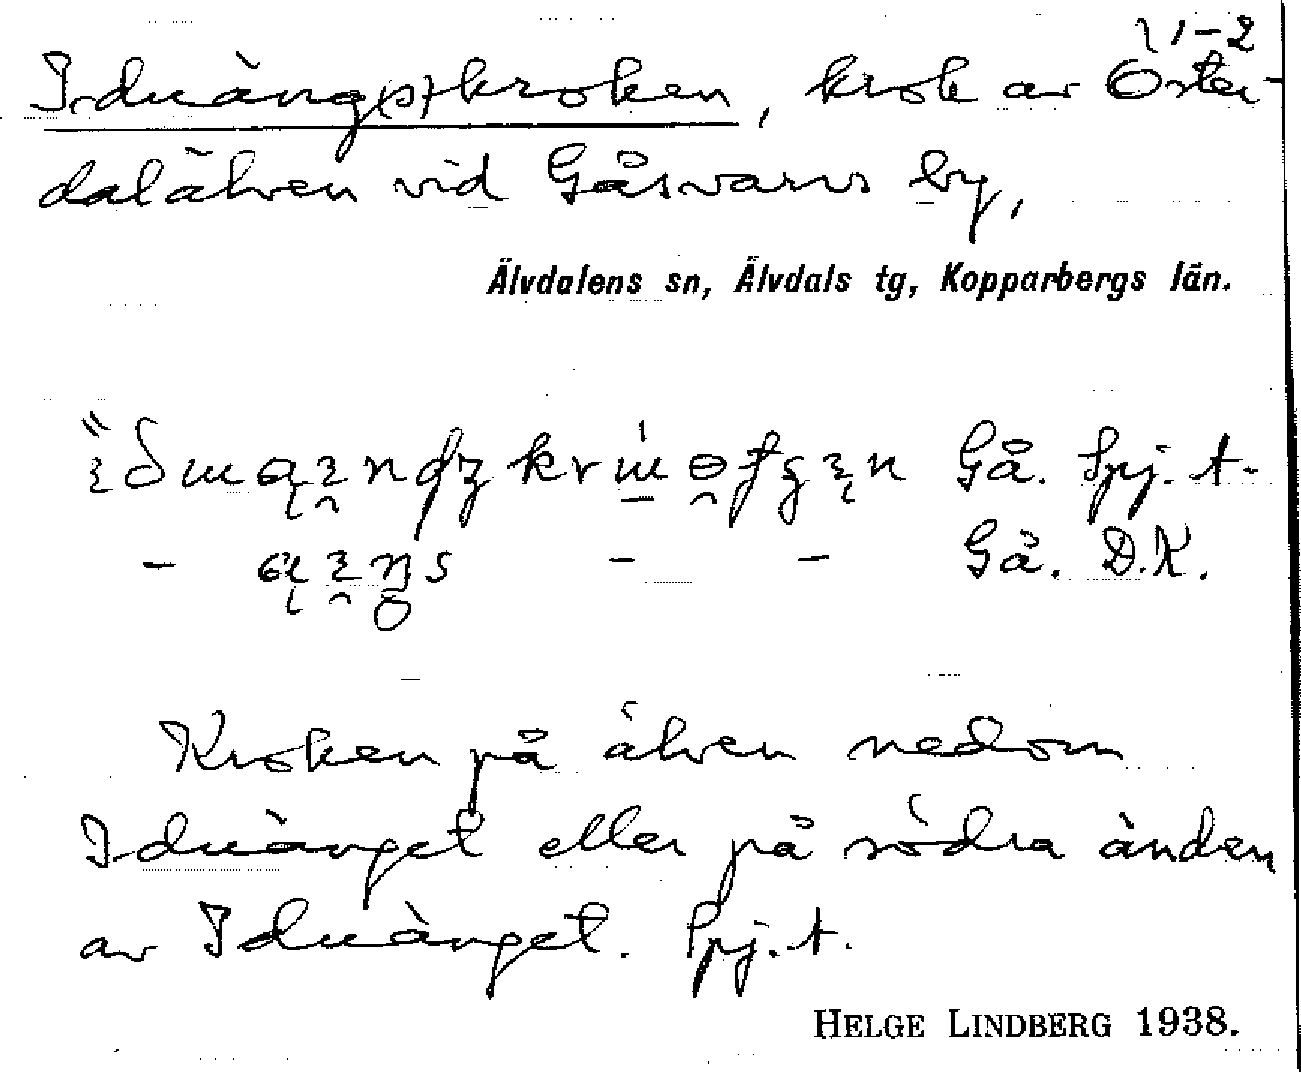 11-2
Iduäng(s)kroken, krok av Öster-
dalälven vid Gåsvarvs by,
Älvdalens sn, Älvdals tg, Kopparbergs län.
Gå. Spj. t.
– – – Gå. D.K.
Kroken på älven nedom
Iduänget eller på södra änden
av Iduänget. Spj. t.
HELGE LINDBERG 1938.